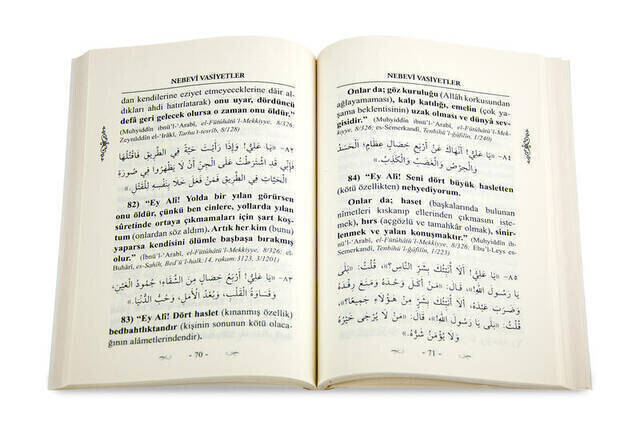 NEBEVÎ VASİYETLER
dan kendilerine eziyet etmeyeceklerine dâir al-
dıkları ahdi hatırlatarak) onu uyar, dördüncü
defâ geri gelecek olursa o zaman onu öldür."
(Muhyiddîn ibnü'l-'Arabî, el-Fütûhâtü'l-Mekkiyye, 8/326;
Zeynüddîn el-'Irâkî, Tarhu't-tesrîb, 8/128)
٨٢- «يَا عَلِيُّ! وَإِذَا رَأَيْتَ حَيَّةً فِي الطَّرِيقِ فَاقْتُلْهَا
فَإِنِّي قَدِ اشْتَرَطْتُ عَلَى الْجِنِّ أَنْ لَا يَظْهَرُوا فِي صُورَةِ
الْحَيَّاتِ فِي الطَّرِيقِ فَمَنْ فَعَلَ خَلَّا بِنَفْسِهِ لِلْقَتْلِ.»
82) "Ey Ali! Yolda bir yılan görürsen
onu öldür, çünkü ben cinlere, yollarda yılan
sûretinde ortaya çıkmamaları için şart koş-
tum (onlardan söz aldım). Artık her kim (bunu)
yaparsa kendisini ölümle başbaşa bırakmış
olur." (İbnü'l-'Arabî, el-Fütûhâtü'l-Mekkiyye, 8/326; el-
Buhârî, es-Sahîh, Bed'ü'l-halk:14, rakam:3123, 3/1201)
٨٣- «يَا عَلِيُّ! أَرْبَعُ خِصَالٍ مِنَ الشَّقَاءِ؛ جُمُودُ الْعَيْنِ،
وَقَسَاوَةُ الْقَلْبِ، وَبُعْدُ الْأَمَلِ، وَحُبُّ الدُّنْيَا.»
83) "Ey Ali! Dört haslet (kınanmış özellik)
bedbahtlıktandır (kişinin sonunun kötü olaca-
ğının alâmetlerindendir).
- 70 -
NEBEVÎ VASİYETLER
Onlar da; göz kuruluğu (Allâh korkusundan
ağlayamaması), kalp katılığı, emelin (çok ya-
şama beklentisinin) uzak olması ve dünyâ sev-
gisidir." (Muhyiddîn ibnü'l-'Arabî, el-Fütûhâtü'l-Mek-
kiyye, 8/326; es-Semerkandî, Tenbîhü'l-ğâfilîn, 1/240)
٨٤- «يَا عَلِيُّ! أَنْهَاكَ عَنْ أَرْبَعِ خِصَالٍ عِظَامٍ: الْحَسَدِ
وَالْحِرْصِ وَالْغَضَبِ وَالْكَذِبِ.»
84) "Ey Ali! Seni dört büyük hasletten
(kötü özellikten) nehyediyorum.
Onlar da; haset (başkalarında bulunan
nîmetleri kıskanıp ellerinden çıkmasını iste-
mek), hırs (açgözlü ve doyumsuz olmak), sinir-
lenmek ve yalan konuşmaktır." (Muhyiddîn ib-
nü'l-'Arabî, el-Fütûhâtü'l-Mekkiyye, 8/326; Ebu'l-Leys es-
Semerkandî, Tenbîhü'l-ğâfilîn, 1/223)
٨٥- «يَا عَلِيُّ! أَلَا أُنَبِّئُكَ بِشَرِّ النَّاسِ؟»، قُلْتُ: «بَلَى
يَا رَسُولَ اللّٰهِ!»، قَالَ: «مَنْ أَكَلَ وَحْدَهُ وَمَنَعَ رِفْدَهُ
وَضَرَبَ عَبْدَهُ، أَلَا أُنَبِّئُكَ بِشَرٍّ مِنْ هٰؤُلَاءِ جَمِيعًا؟»،
قُلْتُ: «بَلَى يَا رَسُولَ اللّٰهِ!»، قَالَ: «مَنْ لَا يُرْجَى خَيْرُهُ
وَلَا يُؤْمَنُ شَرُّهُ.»
- 71 -